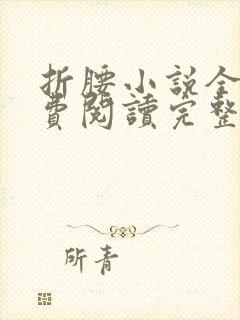 折腰小說全
費閱讀完整
所青